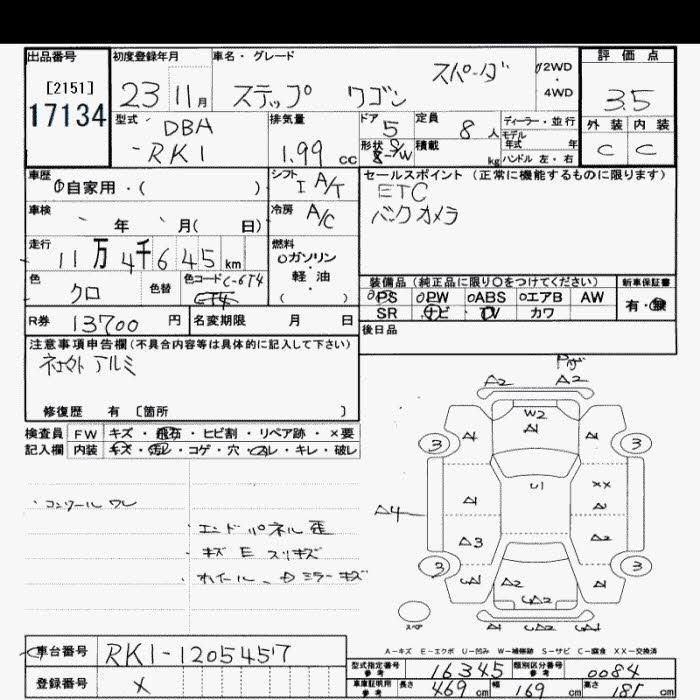 出品番号 初度登録年月 車名・グレード 評価点
[2151]
17134
23 11月 ステップ ワゴン スパーダ 2WD・4WD 3.5
型式 DBA -RK1 排気量 1.99 cc ドア 5 定員 8 人 ディーラー・並行 外装 内装
形状 積載 kg モデル年式 年 ハンドル 左・右 C C
車歴 ①自家用・( ) シフト I A/T セールスポイント (正常に機能するものに限ります)
ETC
バックカメラ
車検 年 月( 日) 冷房 A/C
走行 11万4千645 km 燃料 ガソリン・軽油 ( )
色 クロ 色替 色コード C-6T4
装備品 (純正品に限り〇をつけてください) 新車保証書
PS PW ABS エアB AW 有・無
SR ナビ TV カワ
R券 13700 円 名変期限 月 日 後日品
注意事項申告欄(不具合内容等は具体的に記入して下さい)
社外アルミ
修復歴 有 〔箇所 〕
検査員 FW キズ・飛石・ヒビ割・リペア跡・×要
記入欄 内装 キズ・汚レ・コゲ・穴・スレ・キレ・破レ
・コンソール ワレ
・エンドパネル 歪
・キズ E スリキズ
・ホイール、ミラーキズ
A2 A2
W2
A1
3 A1 A1 3
U1
A1 XX
A4
A3 A2
3 A1 3
A2
スペア
A-キズ E-エクボ U-凹み W-補修跡 S-サビ C-腐食 XX-交換済
車台番号 RK1-1205457
登録番号 ×
型式指定番号 参考 16345 類別区分番号 参考 0084
車庫証明用 参考 長さ 469 cm 幅 169 cm 高さ 181 cm